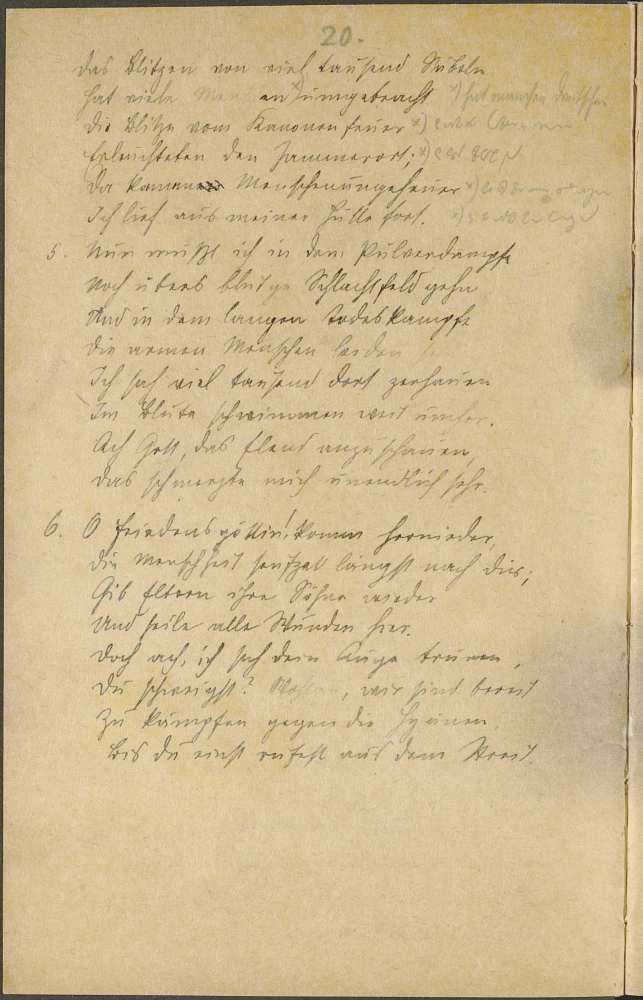 20.
Das Blitzen von viel tausend Säbeln
Hat viele en x) umgebracht x) hat manchen Deutschen
Die Blitze vom Kanonenfeuer x)
Erleuchteten den Jammerort; x)
Da kamen Menschenungeheuer x)
Ich lief aus meiner Hülle fort. x)
5. Nun mußt ich in dem Pulverdampfe
Noch übers blut'ge Schlachtfeld gehn
Und in dem langen Todeskampfe
Die armen Menschen leiden
Ich sah viel tausend dort zerhauen
Im Blute schwimmen weit umher.
Ach Gott, das Elend anzuschauen,
Das schmerzte mich unendlich sehr.
6. O Friedensgöttin! komm hernieder,
Die Menschheit seufzet längst nach dir;
Gib Eltern ihre Söhne wieder
Und heile alle Wunden hier.
Doch ach, ich seh dein Auge tränen,
Du schweigst? , wir sind bereit
Zu kämpfen gegen die Hyänen
Bis du einst rufest aus dem Streit.